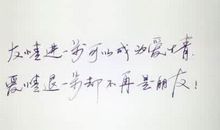 友情进一步可以成为爱情
爱情退一步却不再是朋友!